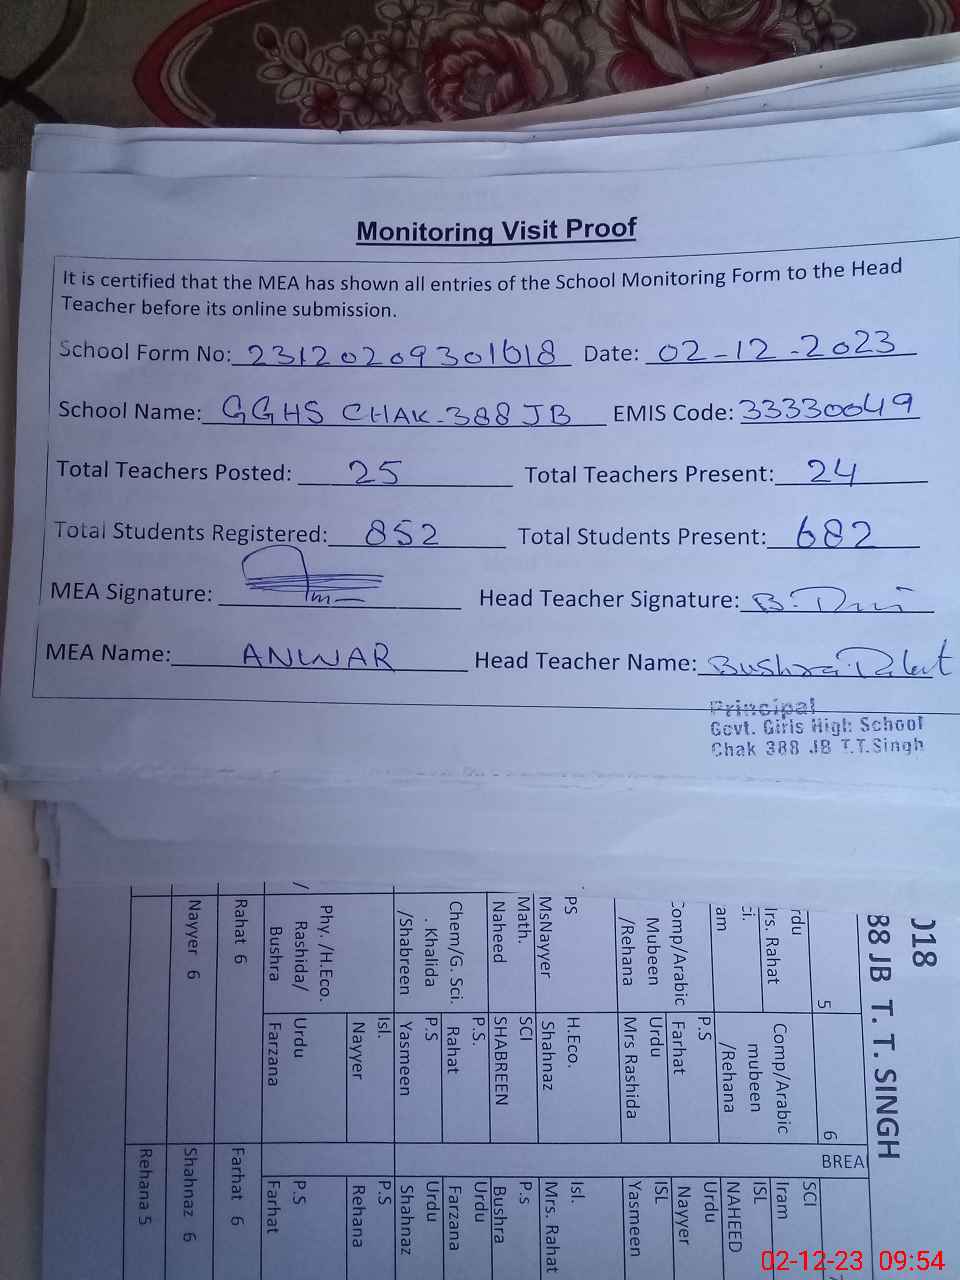 Monitoring Visit Proof
It is certified that the MEA has shown all entries of the School Monitoring Form to the Head
Teacher before its online submission.
School Form No: 23120209301618 Date: 02-12-2023
School Name: GGHS CHAK-388 JB EMIS Code: 33330049
Total Teachers Posted: 25 Total Teachers Present: 24
Total Students Registered: 852 Total Students Present: 682
MEA Signature: Head Teacher Signature:
MEA Name: ANWAR Head Teacher Name: Bushra
Principal
Govt. Girls High School
Chak 388 JB T.T.Singh
018
88 JB T. T. SINGH
5
6
BREA
rdu
Irs. Rahat
ci.
am
Comp/Arabic
Mubeen
/Rehana
PS
MsNayyer
Math.
Naheed
Chem/G. Sci.
. Khalida
/Shabreen
Phy. /H.Eco.
Rashida/
Bushra
Rahat 6
Nayyer 6
Comp/Arabic
mubeen
/Rehana
P.S
Farhat
Urdu
Mrs Rashida
H.Eco.
Shahnaz
SCI
SHABREEN
P.S.
Rahat
P.S
Yasmeen
Isl.
Nayyer
Urdu
Farzana
SCI
Iram
ISL
NAHEED
Urdu
Nayyer
ISL
Yasmeen
Isl.
Mrs. Rahat
P.s
Bushra
Urdu
Farzana
Urdu
Shahnaz
P.S
Rehana
P.S
Farhat
Farhat 6
Shahnaz 6
Rehana 5
02-12-23 09:54